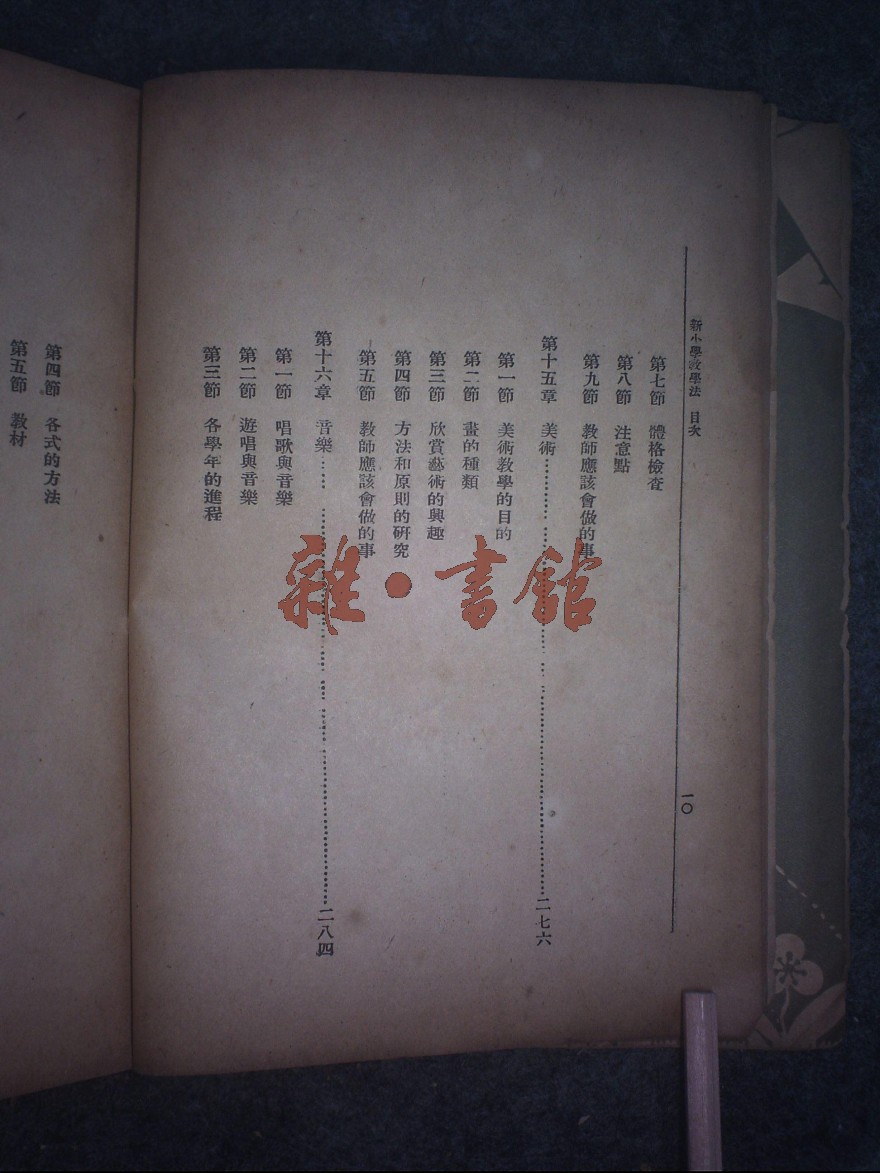 新小學教學法 目次
一〇
第七節 體格檢查
第八節 注意點
第九節 教師應該會做的事
第十五章 美術……二七六
第一節 美術教學的目的
第二節 畫的種類
第三節 欣賞藝術的興趣
第四節 方法和原則的研究
第五節 教師應該會做的事
第十六章 音樂……二八四
第一節 唱歌與音樂
第二節 遊唱與音樂
第三節 各學年的進程
第四節 各式的方法
第五節 教材
雜·書館